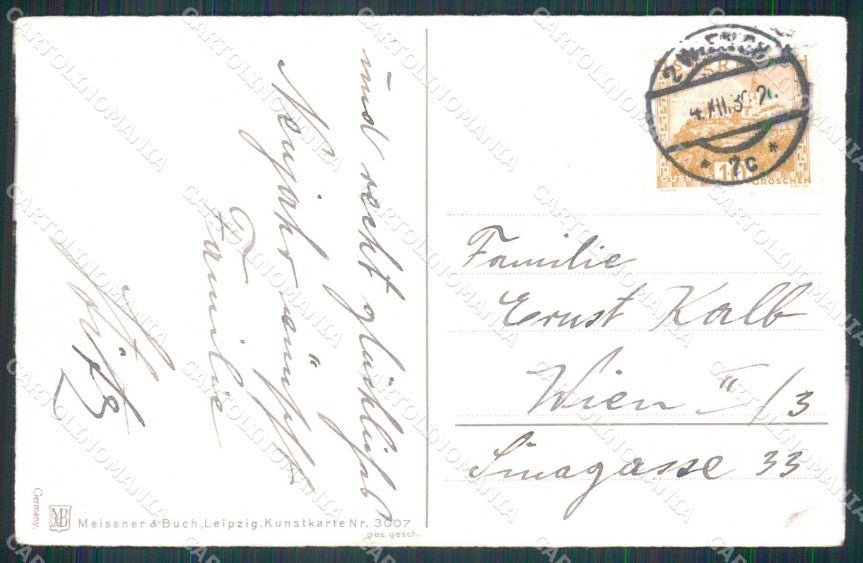 und recht glückliches
Neujahr wünscht
Familie
Familie
Ernst Kalb
Wien II/3
Sinagasse 33
ÖSTERREICH
10
GROSCHEN
* 7c *
Germany.
MB
Meissner & Buch, Leipzig, Kunstkarte Nr. 3007
ges. gesch.
CARTOLINOMANIA